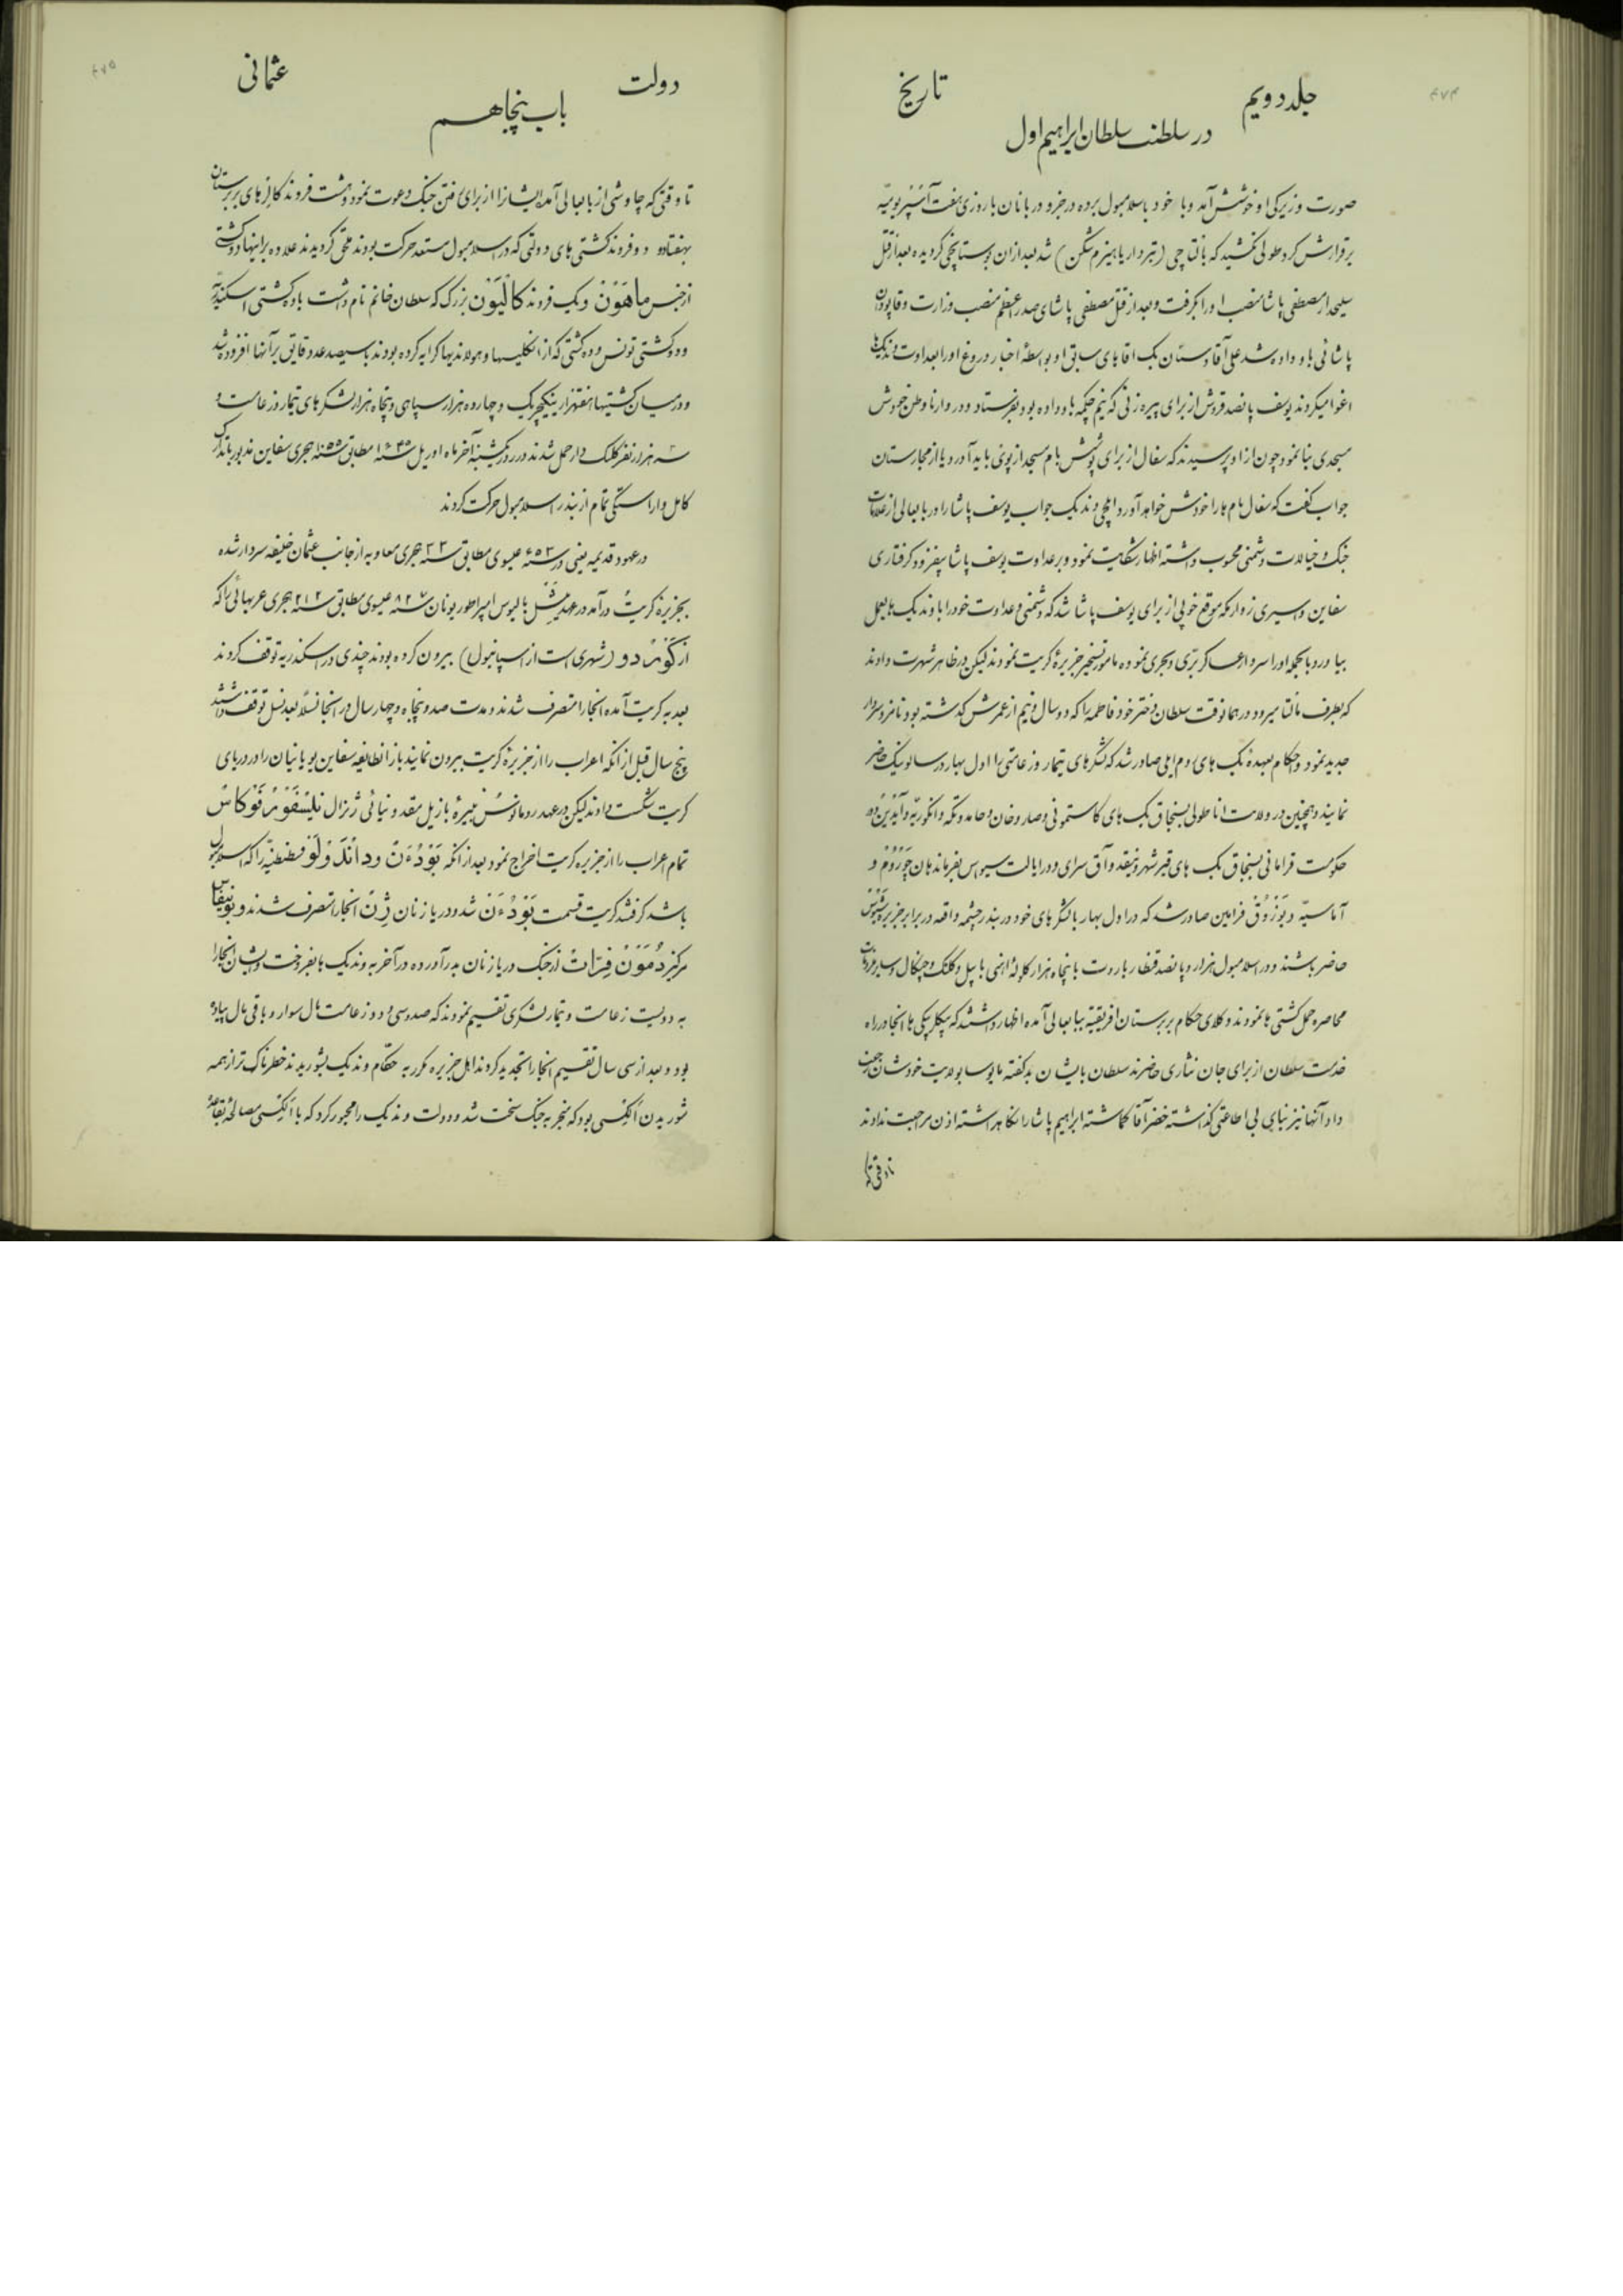 جلد دویم
تاریخ
۴۷۴
در سلطنت سلطان ابراهیم اول
صورت و زیرکی او خوشش آمد و با خود باسلامبول برده در جزو دربانان با روزی هفت آسپر یومیّه
برقرارش کرد طولی نکشید که بالتاچی (تبردار یا هیزم شکن) شد بعد از ان بوستانجی گردیده بعد از قتل
سلیحدار مصطفی پاشا منصب او را بگرفت و بعد از قتل مصطفی پاشای صدر اعظم منصب وزارت و قاپودان
پاشائی باو داده شد علی آقا دوستان بک اقابای سابق او بواسطهٔ اخبار دروغ او را بعداوت وندیکها
اغوا میکردند یوسف پانصد قروش از برای پیره زنی که نیم چکمه باو داده بود بفرستاد و در وارنا وطن خودش
مسجدی بنا نمود چون از او پرسیدند که سفال از برای پوشش بام مسجد از پوئی باید آورد یا از مجارستان
جواب گفت که سفال بام ها را خودش خواهد آورد ایلچی وندیک جواب یوسف پاشا را در بابعالی از علامات
جنک و خیالات دشمنی محسوب داشته اظهار شکایت نمود و بر عداوت یوسف پاشا بیفزود گرفتاری
سفاین و اسیری زوار مکه موقع خوبی از برای یوسف پاشا شد که دشمنی و عداوت خود را با وندیک ها بعمل
بیاورد بالجمله او را سردار عساکر برّی و بحری نموده مامور تسخیر جزیرهٔ کریت نمودند لیکن در ظاهر شهرت دادند
که بطرف مالتا میرود در همانوقت سلطان دختر خود فاطمه را که دو سال و نیم از عمرش گذشته بود نامزد سردار
جدید نمود و احکام بعهدهٔ بک های روم ایلی صادر شد که لشکرهای تیمار و زعامتی را اول بهار در سالونیک حاضر
نمایند و همچنین در ولایت اناطولی بسنجاق بک های کاستمونی و صاروخان و حامد و تکه و انگوریّه و آیْدین و در
حکومت قرامانی بسنجاق بک های قیرشهر و نیقده و آق سرای و در ایالت سیواس بفرماندهان چوروم و
آماسیّه و بوزوق فرامین صادر شد که در اول بهار با لشکرهای خود در بندر چشمه واقعه در برابر جزیره شیس
حاضر باشند و در اسلامبول هزار و پانصد قنطار باروت با پنجاه هزار گلولهٔ اهنی با بیل و کلنک و چنگال و سایر لوازمات
محاصره حمل کشتی ها نمودند وکلای حکام بربرستان افریقیّه ببابعالی آمده اظهار داشتند که بیگلربیگی ها انجا در راه
خدمت سلطان از برای جان نثاری حاضرند سلطان بایشان بد گفته مایوسا بولایت خودشان رجعت
داد آنها نیز بنای بی اطاعتی گذاشته خضر آقا گماشته ابراهیم پاشا را نگاهداشته اذن مراجعت ندادند
تا وقتی که
دولت
عثمانی
۴۷۵
باب پنجاهم
تا وقتی که چاوشی از بابعالی آمده ایشانرا از برای رفتن جنک دعوت نمود و هشت فروند گالرهای بربرستان
بهفتاد و دو فروند کشتی های دولتی که در اسلامبول مستعد حرکت بودند ملحق گردیدند علاوه بر اینها دو کشتی
از جنس ماهَوْنْ و یک فروند کالْیَوْن بزرک که سلطان خانم نام داشت با ده کشتی اسکندریّه
و دو کشتی تونس و ده کشتی که از انگلیسها و هولاندیها کرایه کرده بودند با سیصد عدد قایق بر آنها افزوده شد
و در میان کشتیها هفتهزار ینکیچریک و چهارده هزار سپاهی و پنجاه هزار لشکرهای تیمار و زعامت و
سه هزار نفر کلنک دار حمل شدند در روز یکشنبه آخر ماه اوریل سنه ۱۶۴۵ مطابق سنه ۱۰۵۵ هجری سفاین مذبور با تدارک
کامل و اراستگی تمام از بندر اسلامبول حرکت کردند
در عهود قدیمه یعنی در سنه ۶۵۳ عیسوی مطابق سنه ۳۳ هجری معاویه از جانب عثمان خلیفه سردار شده
بجزیرهٔ کریت درآمد در عهد میشل بالبوس امپراطور یونان سنه ۸۲۷ عیسوی مطابق سنه ۲۱۲ هجری عربهائی را که
از کوُرْدو (شهری است از اسپانیول) بیرون کرده بودند چندی در اسکندریه توقف کردند
بعد به کریت آمده انجا را متصرف شدند و مدت صد و پنجاه و چهار سال در انجا نسلاً بعد نسل توقف داشتند
پنج سال قبل از آنکه اعراب را از جزیرهٔ کریت بیرون نمایند باز انطایفه سفاین یونانیان را در دریای
کریت شکست دادند لیکن در عهد رومانوس نبیرهٔ بازیل مقدونیائی ژنرال نیسفور فوکاس
تمام اعراب را از جزیره کریت اخراج نمود بعد از انکه بَوْدُءَنْ و دانْدَوْلَوْ قسطنطنیّه را که اسلامبول
باشد گرفتند کریت قسمت بَوْدُءَنْ شد و دریا زنان ژِنْ انجا را متصرف شدند و بونیفا
مرکیز دُمَوْنْ فِرّات از جنک دریا زنان بدر آورده در آخر به وندیک ها بفروخت و ایشان انجا را
به دویست زعامت و تیمار لشکری تقسیم نمودند که صد و سی و دو زعامت مال سوار و باقی مال پیاده
بود و بعد از سی سال تقسیم انجا را تجدید کردند اهل جزیره مکرر به حکّام وندیک بشوریدند خطرناک تر از همه
شوریدن آلکسی بود که منجر به جنک سخت شد و دولت وندیک را مجبور کرد که با آلکسی مصالحه بقاعدهٔ